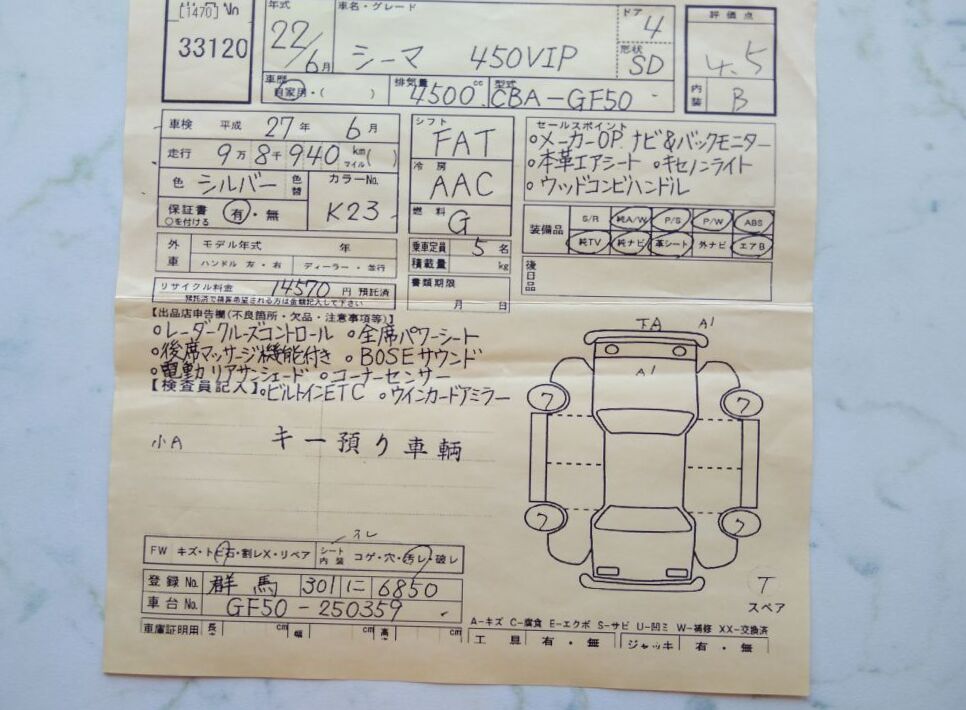 [1470] No
33120
年式 車名・グレード ドア 4 評価点
22/6月 シーマ 450VIP 形状 SD 4.5
車歴 自家用・( ) 排気量 4500cc 型式 CBA-GF50 内装 B
車検 平成 27年 6月 シフト FAT セールスポイント
○メーカーOP ナビ&バックモニター
走行 9万8千940 km マイル( ) 冷房 AAC ○本革エアシート ○キセノンライト
色 シルバー 色替 カラーNo. K23 ○ウッドコンビハンドル
保証書 有・無 燃料 G
○を付ける
装備品 S/R 純A/W P/S P/W ABS
純TV 純ナビ 革シート 外ナビ エアB
外車 モデル年式 年 乗車定員 5名 後日品
ハンドル 左・右 ディーラー・並行 積載量 kg
リサイクル料金 14570 円 預託済 書類期限 月 日
預託済で精算希望される方は金額記入して下さい
【出品店申告欄(不良箇所・欠品・注意事項等)】
○レーダークルーズコントロール ○全席パワーシート
○後席マッサージ機能付き ○BOSEサウンド
○電動リアサンシェード ○コーナーセンサー
【検査員記入】○ビルトインETC ○ウインカードアミラー
小A キー預り車輌
下A A1
A1
7 7
7 7
T
スペア
スレ
FW キズ・トビ石・割レX・リペア シート内装 コゲ・穴・汚レ・破レ
登録No. 群馬 301 に 6850
車台No. GF50-250359
A-キズ C-腐食 E-エクボ S-サビ U-凹ミ W-補修 XX-交換済
車庫証明用 長さ cm 幅 cm 高さ cm 工具 有・無 ジャッキ 有・無